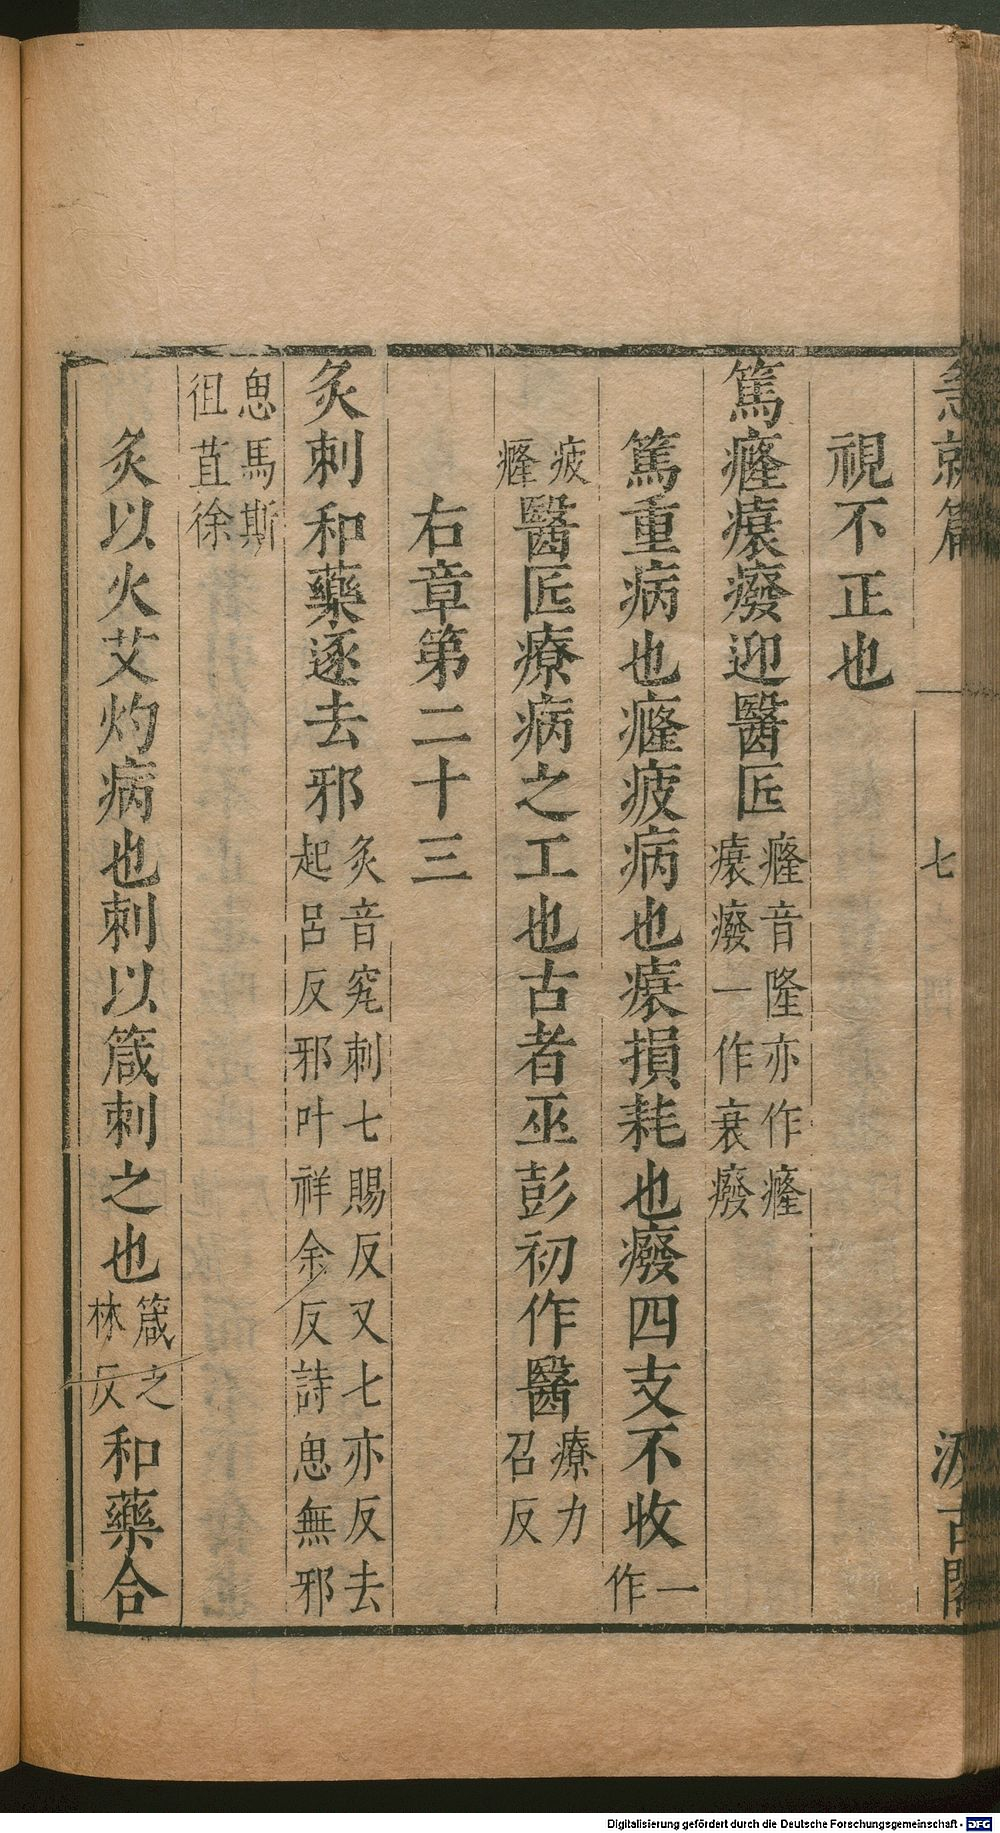 急就篇
七
汲古閣
視不正也
篤癃㾮癈迎醫匠癃音隆亦作㿖㾮癈一作衰癈
篤重病也癃疲病也㾮損耗也癈四支不收一作
疲癃醫匠療病之工也古者巫彭初作醫療力召反
右章第二十三
灸刺和藥逐去邪灸音究刺七賜反又七亦反去起呂反邪叶祥余反詩思無邪
思馬斯徂苴徐
灸以火艾灼病也刺以箴刺之也箴之林反和藥合
Digitalisierung gefördert durch die Deutsche Forschungsgemeinschaft - DFG